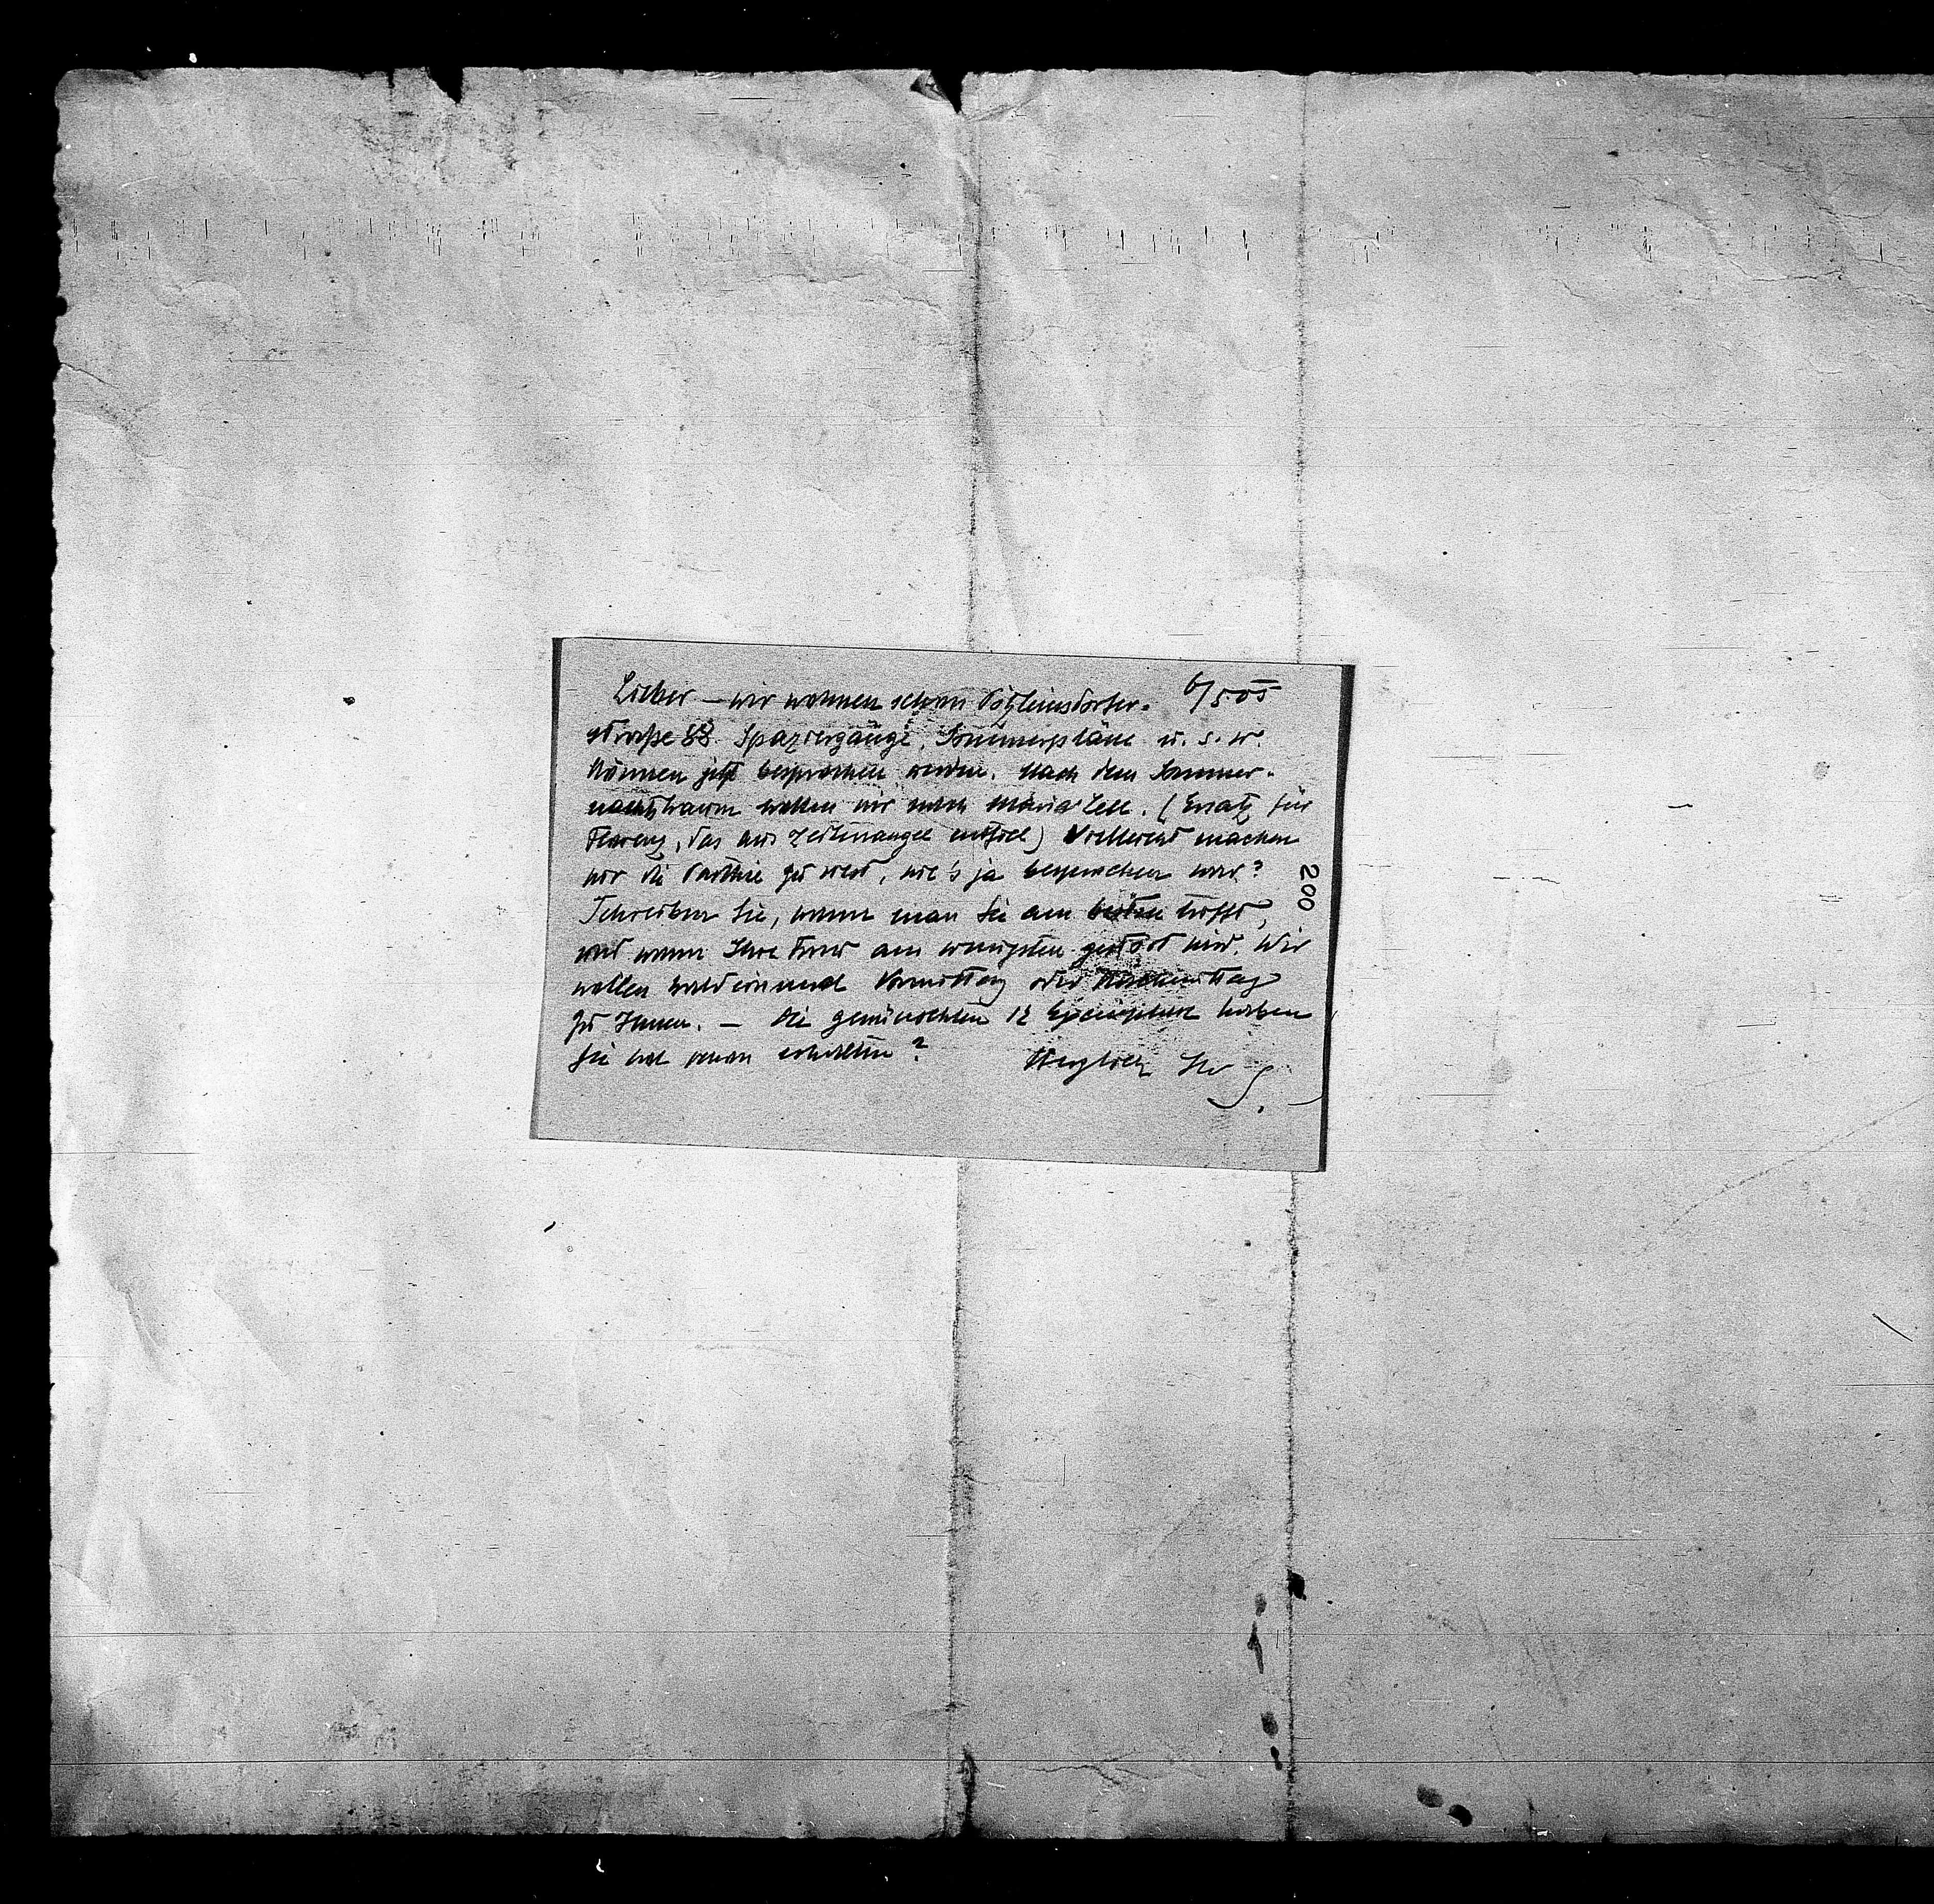 Lieber – wir wohnen schon Pötzleinsdorfer- 6/5 05
straße 88. Spaziergänge, Sommerpläne u. s. w.
können jetzt besprochen werden. Nach dem Sommer-
nachtstraum wollen wir nach Maria Zell. (Ersatz für
Florenz, das aus Zeitmangel entfiel) Vielleicht machen
wir die Parthie zu viert, wie's ja besprochen war?
Schreiben Sie, wann man Sie am besten trifft,
und wann Ihre Frau am wenigsten gestört wird. Wir
wollen bald einmal Vormittag oder Nachmittag
zu Ihnen. – Die gewünschten 12 Exemplare haben
Sie wol schon erhalten? Herzlich Ihr S.
200